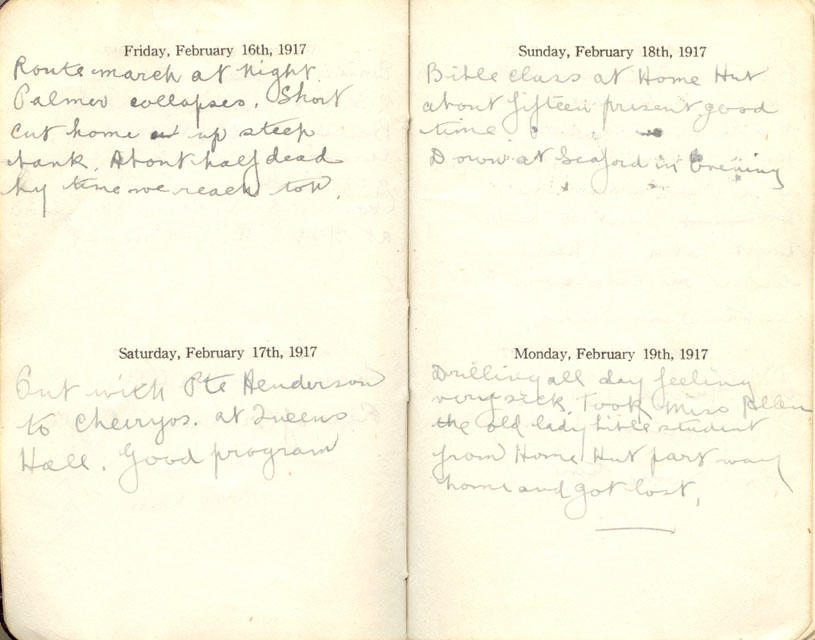 Friday, February 16th, 1917
Route march at night.
Palmer collapses. Short
cut home up steep
bank. About half dead
by time we reach top.
Saturday, February 17th, 1917
Out with Pte Henderson
to Cheeryos. at Queens
Hall. Good program
Sunday, February 18th, 1917
Bible class at Home Hut
about fifteen present good
time
Down at Seaford in Evening
Monday, February 19th, 1917
Drilling all day feeling
very sick. Took Miss Allen
the old lady bible student
from Home Hut part way
home and got lost.